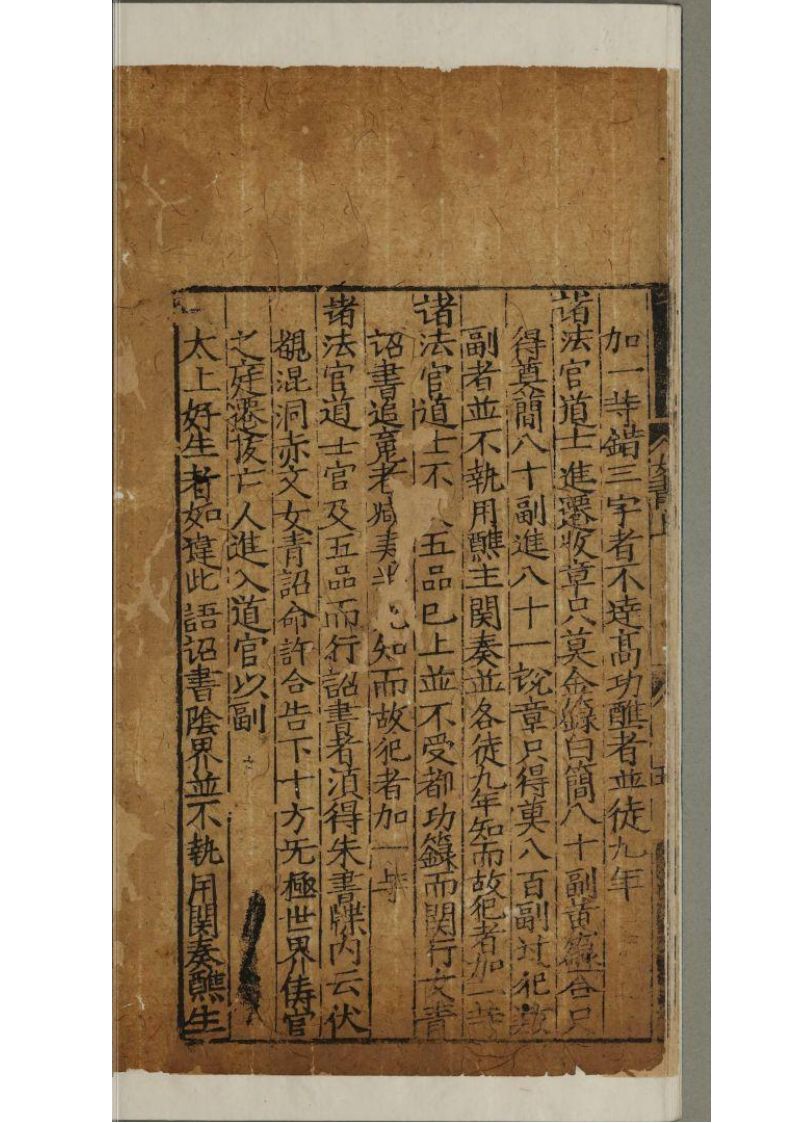 加一䓁錯三字者不逹髙功醮者並徒九年
諸法官道士進遷收章只莫金籙白簡八十副黄籙合只
得奠簡八十副進八十一說章只得莫八百副过犯
副者並不執用醮主関奏並各徒九年知而故犯者加一䓁
諸法官道士不 五品巳上並不受都功籙而関行女青
詔書追䰟 知而故犯者加一䓁
諸法官道士官及五品而行詔書者湏得朱書牒内云伏
覩混洞赤文女青詔命許合告下十方旡極世界儔官
之庭遷拔亡人進入道官以副
太上好生者如違此語詔書隂界並不執用関奏醮生
女青 上